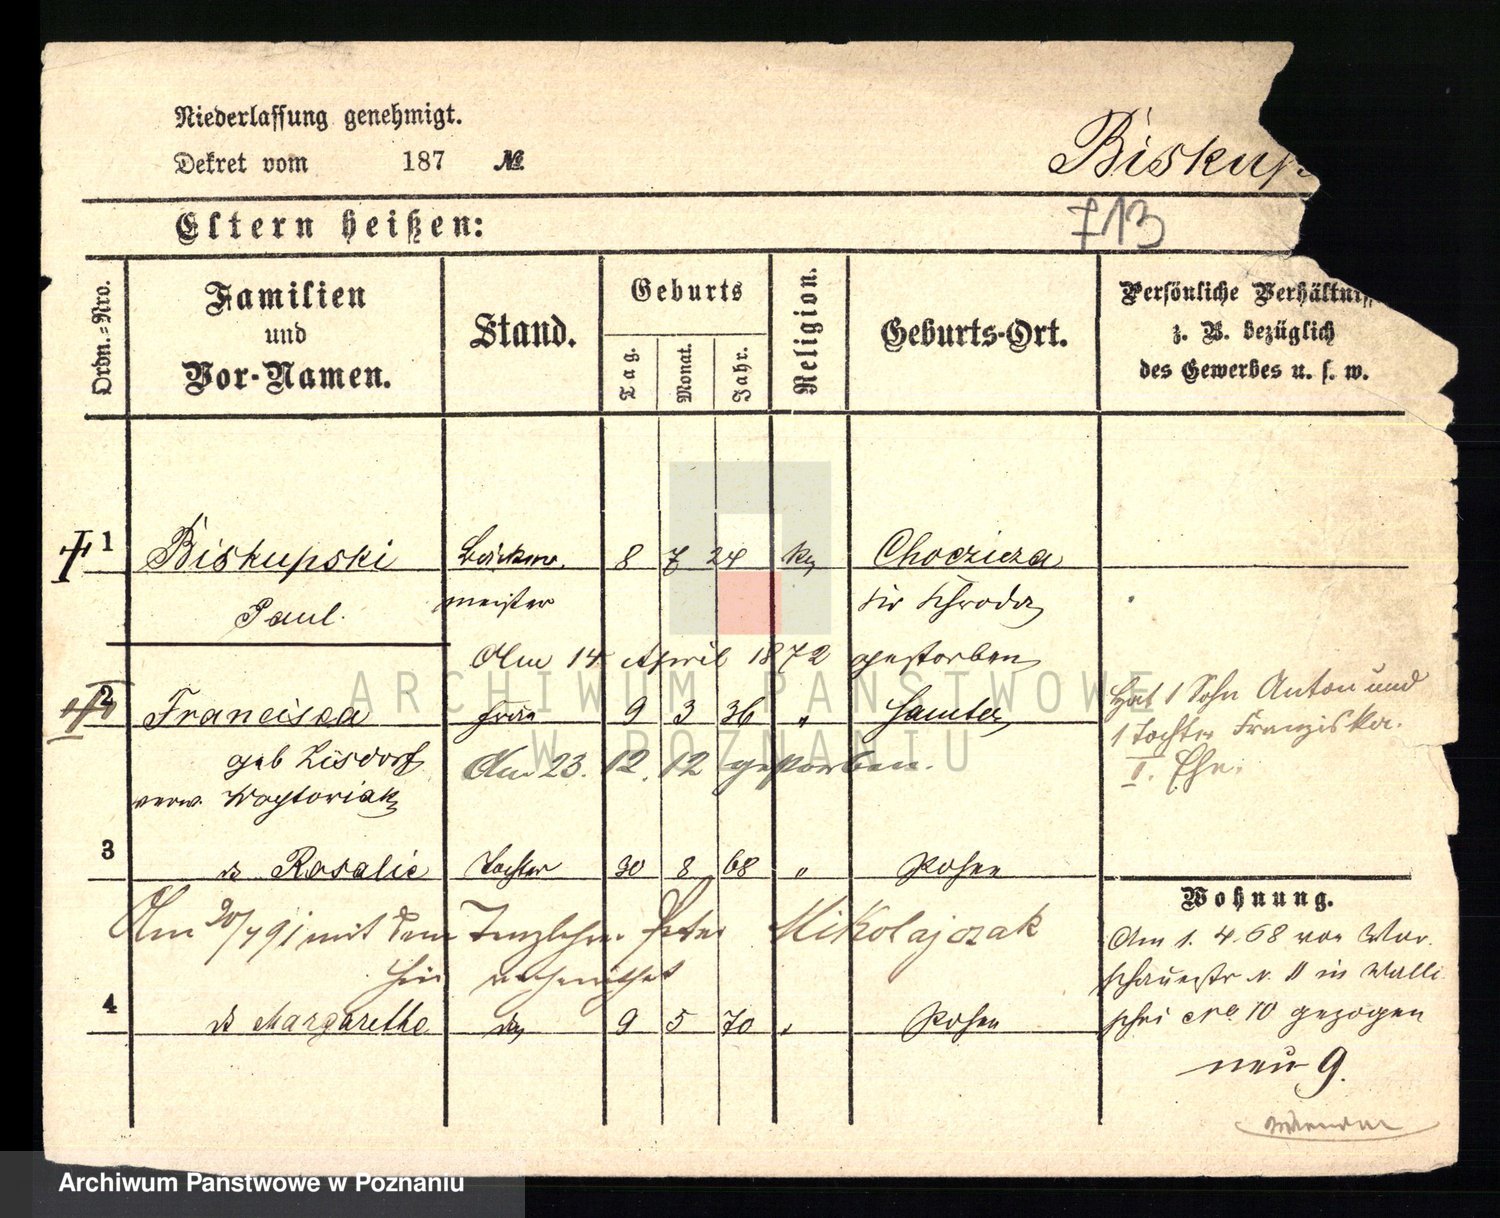 Niederlassung genehmigt.
Dekret vom 187 №
Biskup
713
Eltern heißen:
Ordn.-Nro.
Familien und Vor-Namen.
Stand.
Geburts
Tag.
Monat.
Jahr.
Religion.
Geburts-Ort.
Persönliche Verhältniss
z. B. bezüglich
des Gewerbes u. s. w.
1 Biskupski Bäcker 8 7 24 Chocziza
Paul. meister Schroda
Am 14 April 1872 gestorben
2 Francisca Frau 9 3 36 " Samter
geb Lisdorf
verw.
Am 23. 12. 12 gestorben.
Hat 1 Sohn Anton und
1 Tochter Franziska.
I. Ehe.
3 Rosalie Tochter 30 8 68 " Posen
Am 20/7 91 mit dem Peter Mikolajczak
hier verheirathet
4 Margarethe 9 5 70 " Posen
Wohnung.
Am 1. 4. 68 von War
schauerstr. in Walli
schei 10 gezogen
neu 9.
ARCHIWUM PAŃSTWOWE
W POZNANIU
Archiwum Państwowe w Poznaniu